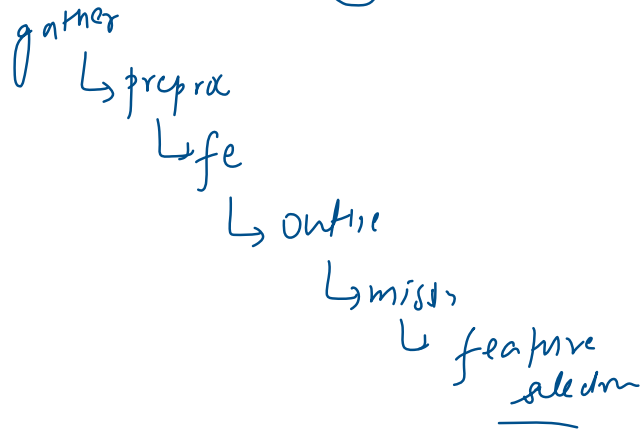 gather
preprox
fe
outlie
missi
feature
selection